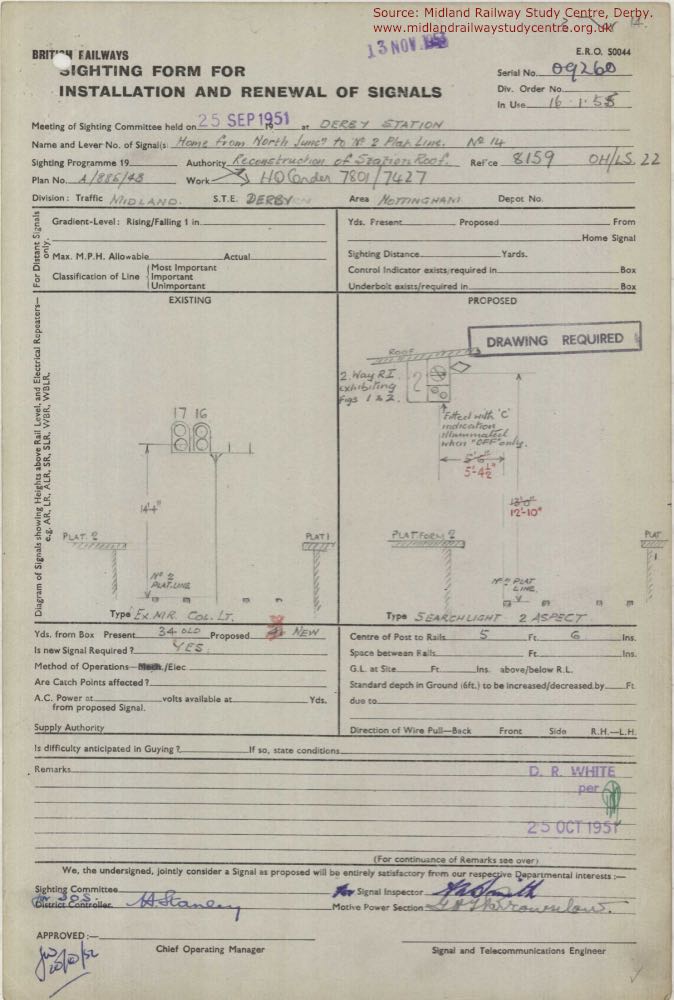 Source: Midland Railway Study Centre, Derby.
www.midlandrailwaystudycentre.org.uk
13 NOV. 1953
BRITISH RAILWAYS
E.R.O. 50044
SIGHTING FORM FOR
INSTALLATION AND RENEWAL OF SIGNALS
Serial No. 09260
Div. Order No.
In Use 16.1.55
Meeting of Sighting Committee held on 25 SEP 1951 19 at DERBY STATION
Name and Lever No. of Signal(s) Home from North Junc. to No 2 Plat. Line. No 14
Sighting Programme 19 Authority Reconstruction of Station Roof. Ref'ce 8159 OH/LS. 22
Plan No. A/886/48 Work HO Order 7801/7427
Division: Traffic MIDLAND. S.T.E. DERBY Area NOTTINGHAM Depot No.
For Distant Signals only.
Gradient-Level: Rising/Falling 1 in
Max. M.P.H. Allowable Actual
Classification of Line
Most Important
Important
Unimportant
Yds. Present Proposed From
Home Signal
Sighting Distance Yards.
Control Indicator exists/required in Box
Underbolt exists/required in Box
Diagram of Signals showing Heights above Rail Level, and Electrical Repeaters—
e.g. AR, LR, ALR, SR, SLR, WBR, WBLR.
EXISTING
17 16
14'-4"
PLAT. 2
PLAT 1
No 2
PLAT. LINE
Type Ex. M.R. COL. LT.
PROPOSED
DRAWING REQUIRED
ROOF
2 Way R.I.
exhibiting
Figs 1 & 2.
2
Fitted with 'C'
indication
illuminated
when "OFF" only.
5'-4½"
12'-10"
PLATFORM 2
PLAT
1
No 2 PLAT
LINE.
Type SEARCHLIGHT 2 ASPECT
Yds. from Box Present 34 OLD Proposed NEW
Is new Signal Required? YES.
Method of Operations—Mech./Elec
Are Catch Points affected?
A.C. Power at volts available at Yds.
from proposed Signal.
Supply Authority
Centre of Post to Rails 5 Ft. 6 Ins.
Space between Rails Ft. Ins.
G.L. at Site Ft. Ins. above/below R.L.
Standard depth in Ground (6ft.) to be increased/decreased by Ft.
due to
Direction of Wire Pull—Back Front Side R.H.—L.H.
Is difficulty anticipated in Guying? If so, state conditions
Remarks
D. R. WHITE
per
25 OCT 1951
(For continuance of Remarks see over)
We, the undersigned, jointly consider a Signal as proposed will be entirely satisfactory from our respective Departmental interests:—
Sighting Committee
for S.O.S.
District Controller H Stanley
for Signal Inspector Smith
Motive Power Section
APPROVED:—
Chief Operating Manager
Signal and Telecommunications Engineer